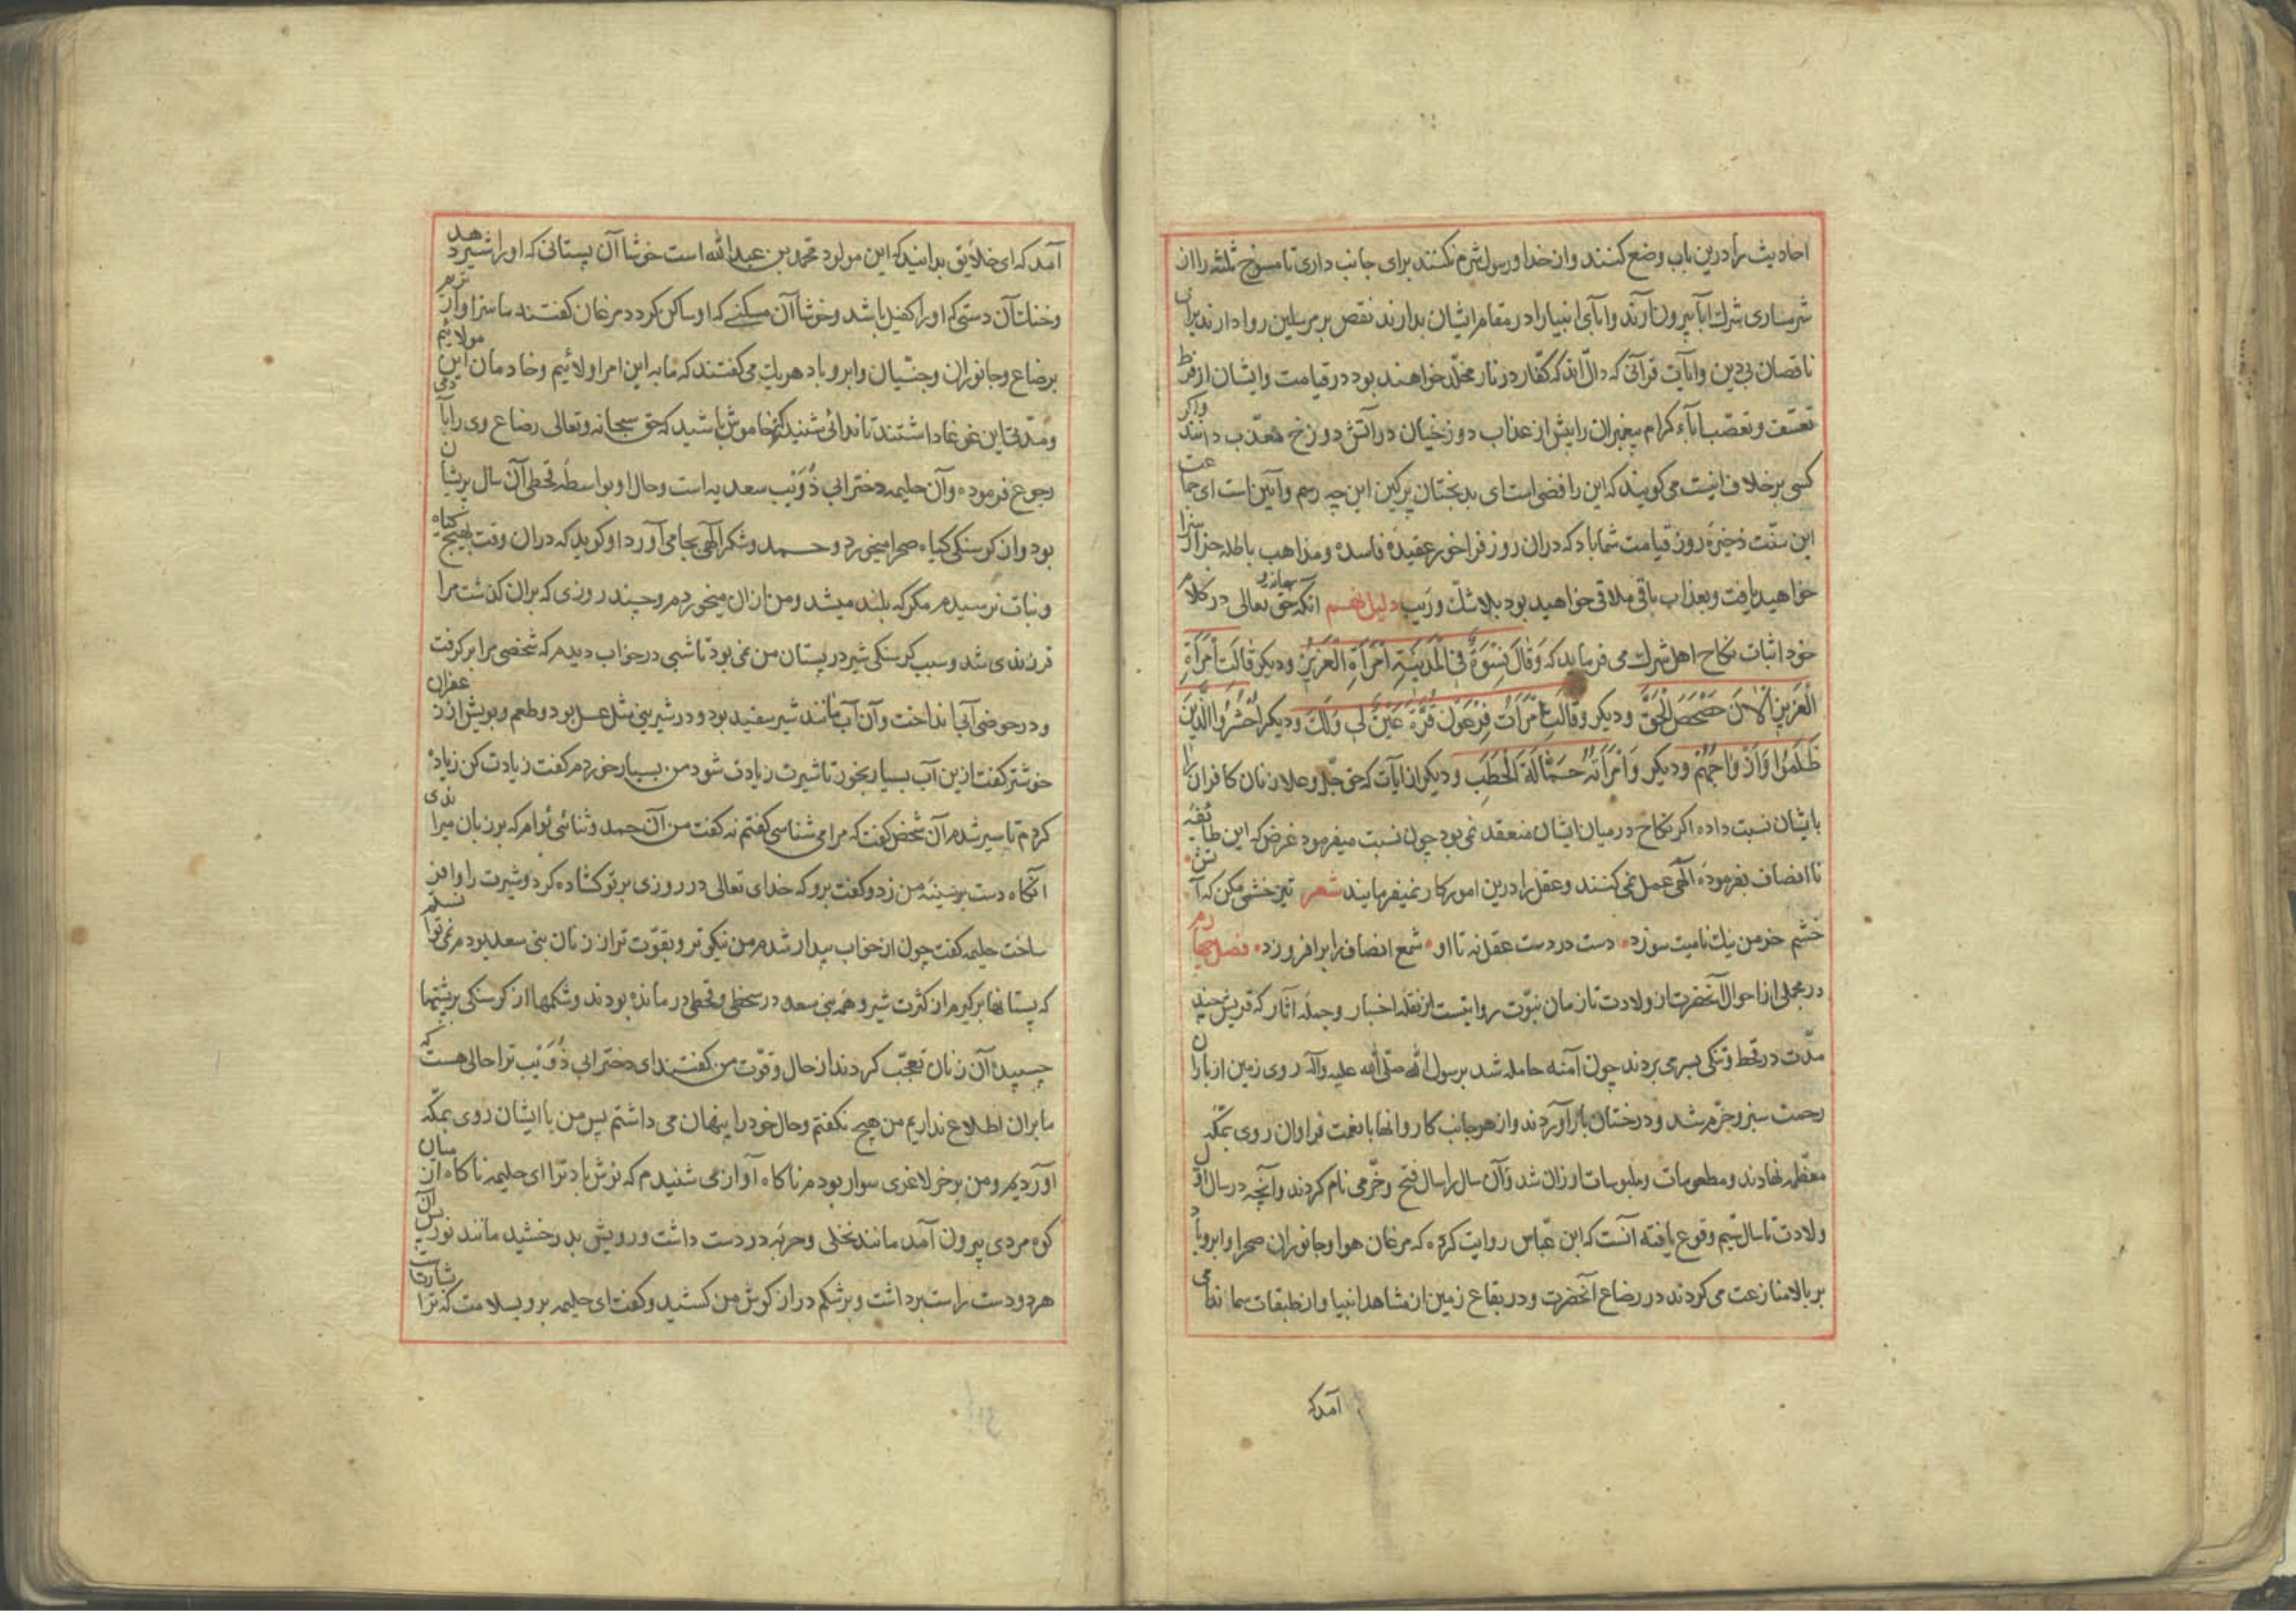 احادیث را درین باب وضع کنند و از خدا و رسول شرم نکنند برای جانب داری تا منسوخ ثلثه را از
شرمساری شرک آبا بیرون آرند و آبای انبیا را در مقام ایشان بدارند نقص بر مرسلین روا دارند برای
ناقصان بی دین و آیات قرآنی که دالّ اند که کفّار در نار مخلّد خواهند بود در قیامت و ایشان از فرط
تعسّف و تعصّب آباء کرام پیغمبران را بیش از عذاب دوزخیان در آتش دوزخ معذّب دانند و اگر
کسی بر خلاف اینست می کویند که این رافضی است ای بدبختان پرکین این چه رسم و آیین است ای جماعت
این سنّت ذخیرهٔ روز قیامت شما باد که دران روز فراخور عقیدهٔ فاسده و مذاهب باطله جزا سزا
خواهید یافت و بعذاب باقی ملاقی خواهید بود بلا شکّ و رَیب دلیل نهم آنکه حق سبحانه و تعالی در کلام
خود اثبات نکاح اهل شرک می فرماید که وَقَالَ نِسْوَةٌ فِی الْمَدِینَةِ امْرَأَةُ الْعَزِیزِ ودیکر قَالَتِ امْرَأَةُ
الْعَزِیزِ الْآنَ حَصْحَصَ الْحَقُّ ودیکر وَقَالَتِ امْرَأَتُ فِرْعَوْنَ قُرَّةُ عَیْنٍ لِی وَلَكَ ودیکر احْشُرُوا الَّذِینَ
ظَلَمُوا وَأَزْوَاجَهُمْ ودیکر وَامْرَأَتُهُ حَمَّالَةَ الْحَطَبِ ودیکر از آیات که حق جلّ وعلا زنان کافران را
بایشان نسبت داده اکر نکاح در میان ایشان منعقد نمی بود چون نسبت میفرمود غرض که این طائفهٔ
نا انصاف بفرمودهٔ الهی عمل نمی کنند و عقل را درین امور کار نمیفرمایند شعر تیز خشمی مکن که آتش
خشم خرمن نیک نامیت سوزد دست در دست عقل نه تا او شمع انصاف را برافروزد فصل چهارم
در مجملی از احوال آنحضرت از ولادت تا زمان نبوّت روایتست از نقلهٔ اخبار و جملهٔ آثار که قریش چند
مدّت در قحط و تنکی بسر می بردند چون آمنه حامله شد برسول الله صلّی الله علیه وآله روی زمین از باران
رحمت سبز و خرّم شد و درختان بار آوردند و از هر جانب کاروانها با نعمت فراوان روی بمکّه
معظّمه نهادند و مطعومات و ملبوسات ارزان شد و آن سال را سال فتح و خرّمی نام کردند و آنچه در سال اوّل
ولادت تا سال پنجم وقوع یافته آنست که ابن عبّاس روایت کرده که مرغان هوا و جانوران صحرا و ابر و باد
بر بالا منازعت می کردند در رضاع آنحضرت و در بقاع زمین از مشاهد انبیا و از طبقات سما ندا می
آمد که
آمد که ای خلایق بدانید که این مولود محمّد بن عبدالله است خوشا آن پستانی که او را شیر دهد
و خنک آن دستی که او را کفیل باشد و خوشا آن مسکنی که او ساکن کردد مرغان کفتند ما سزاوارتریم
برضاع و جانوران و جنّیان و ابر و باد هر یک می کفتند که ما به این امر اولائیم و خادمان این مولائیم
و مدّتی این غوغا داشتند تا ندائی شنیدند که خاموش باشید که حق سبحانه و تعالی رضاع وی را بآدمی
رجوع فرموده و آن حلیمه دختر ابی ذُوَیب سعدیه است و حال او بواسطهٔ قحطی آن سال پریشان
بود و از کرسنکی کیاه صحرا میخورد و حمد و شکر الهی بجا می آورد او کوید که دران وقت بهیچ کیاه
و نبات نرسیدم مکر که بلند میشد و من ازان میخوردم و چند روزی که بران کذشت مرا
فرزندی شد و سبب کرسنکی شیر در پستان من نمی بود تا شبی در خواب دیدم که شخصی مرا بر کرفت
و در حوض آبی انداخت و آن آب مانند شیر سفید بود و در شیرینی مثل عسل بود و طعم و بویش از زعفران
خوشتر کفت ازین آب بسیار بخور تا شیرت زیادت شود من بسیار خوردم کفت زیادت کن زیاده
کردم تا سیر شدم آن شخص کفت که مرا می شناسی کفتم نه کفت من آن حمد و ثنائی توام که بر زبان میراندی
آنکاه دست بر سینهٔ من زد و کفت برو که خدای تعالی در روزی بر تو کشاده کرد و شیرت را وافر
ساخت حلیمه کفت چون از خواب بیدار شدم من نیکوتر و بقوّت تر از زنان بنی سعد بودم نمی توانستم
که پستانها برکیرم از کثرت شیر و همه بنی سعد در سختی و قحطی درمانده بودند و شکمها از کرسنکی بر پشتها
چسپیده آن زنان تعجّب کردند از حال و قوّت من کفتند ای دختر ابی ذُوَیب ترا حالی هست که
ما بران اطلاع نداریم من هیچ نکفتم و حال خود را پنهان می داشتم پس من با ایشان روی بمکّه
آوردیم و من بر خر لاغری سوار بودم ناکاه آواز می شنیدم که نوش باد ترا ای حلیمه ناکاه از میان
کوه مردی بیرون آمد مانند نخلی و حربه در دست داشت و رویش بدرخشید مانند نور پس آن
هر دو دست راست برداشت و بر شکم درازکوش من کشید و کفت ای حلیمه برو بسلامت که ترا بشارت